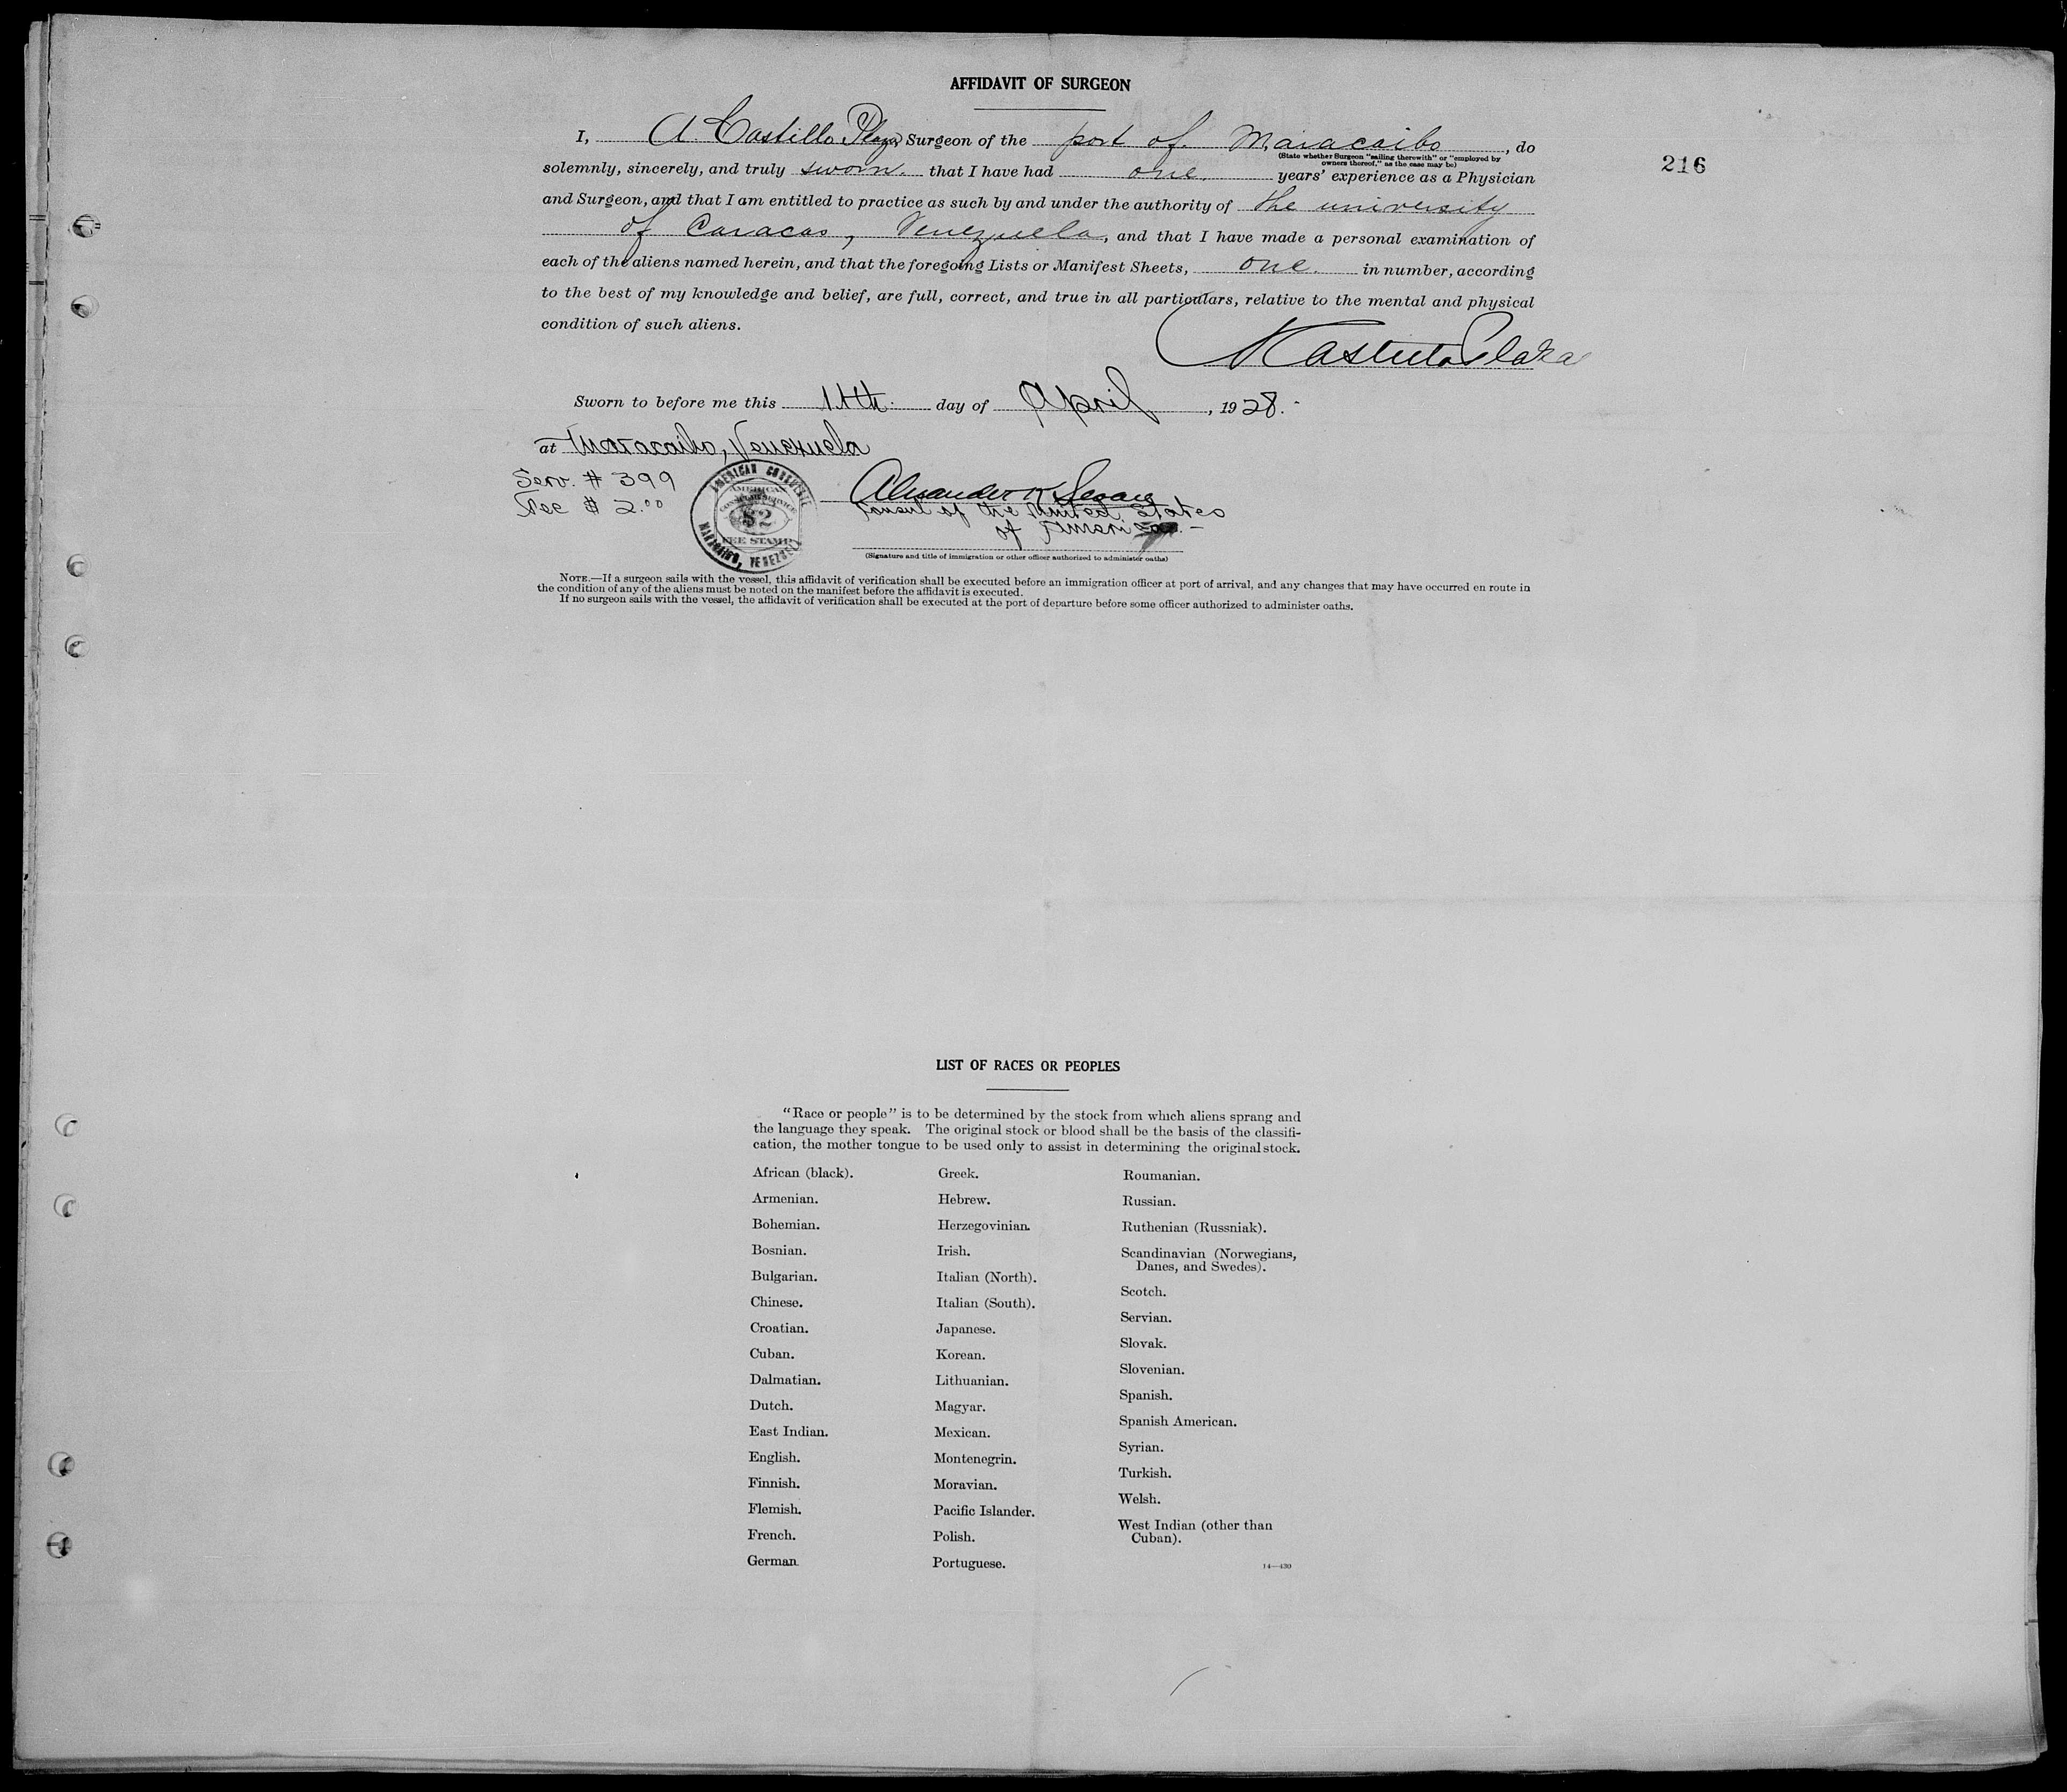 AFFIDAVIT OF SURGEON
216
I, A. Castillo Plaza, Surgeon of the port of Maracaibo, do
(State whether Surgeon "sailing therewith" or "employed by
owners thereof," as the case may be)
solemnly, sincerely, and truly sworn that I have had one years' experience as a Physician
and Surgeon, and that I am entitled to practice as such by and under the authority of the university
of Caracas, Venezuela, and that I have made a personal examination of
each of the aliens named herein, and that the foregoing Lists or Manifest Sheets, one in number, according
to the best of my knowledge and belief, are full, correct, and true in all particulars, relative to the mental and physical
condition of such aliens.
Castillo Plaza
Sworn to before me this 11th day of April, 1928.
at Maracaibo, Venezuela
Serv. # 399
Fee $ 2.00
AMERICAN CONSULATE
MARACAIBO, VENEZUELA
AMERICAN
$2
FEE STAMP
Alexander K. Sloan
Consul of the United States
of America.
(Signature and title of immigration or other officer authorized to administer oaths)
NOTE.—If a surgeon sails with the vessel, this affidavit of verification shall be executed before an immigration officer at port of arrival, and any changes that may have occurred en route in
the condition of any of the aliens must be noted on the manifest before the affidavit is executed.
If no surgeon sails with the vessel, the affidavit of verification shall be executed at the port of departure before some officer authorized to administer oaths.
LIST OF RACES OR PEOPLES
"Race or people" is to be determined by the stock from which aliens sprang and
the language they speak. The original stock or blood shall be the basis of the classifi-
cation, the mother tongue to be used only to assist in determining the original stock.
African (black).
Armenian.
Bohemian.
Bosnian.
Bulgarian.
Chinese.
Croatian.
Cuban.
Dalmatian.
Dutch.
East Indian.
English.
Finnish.
Flemish.
French.
German.
Greek.
Hebrew.
Herzegovinian.
Irish.
Italian (North).
Italian (South).
Japanese.
Korean.
Lithuanian.
Magyar.
Mexican.
Montenegrin.
Moravian.
Pacific Islander.
Polish.
Portuguese.
Roumanian.
Russian.
Ruthenian (Russniak).
Scandinavian (Norwegians,
Danes, and Swedes).
Scotch.
Servian.
Slovak.
Slovenian.
Spanish.
Spanish American.
Syrian.
Turkish.
Welsh.
West Indian (other than
Cuban).
14—430